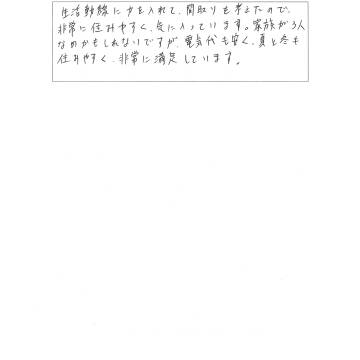 生活動線に力を入れて、間取りを考えたので、
非常に住みやすく、気に入っています。家族が3人
なのかもしれないですが、電気代も安く、夏と冬も
住みやすく、非常に満足しています。